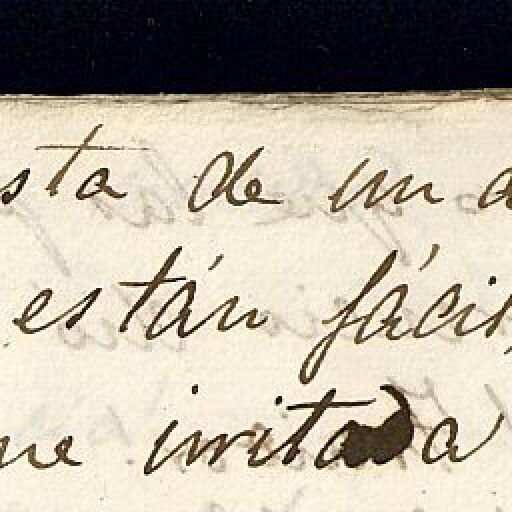 sta de un a
están fácil
ne irritada